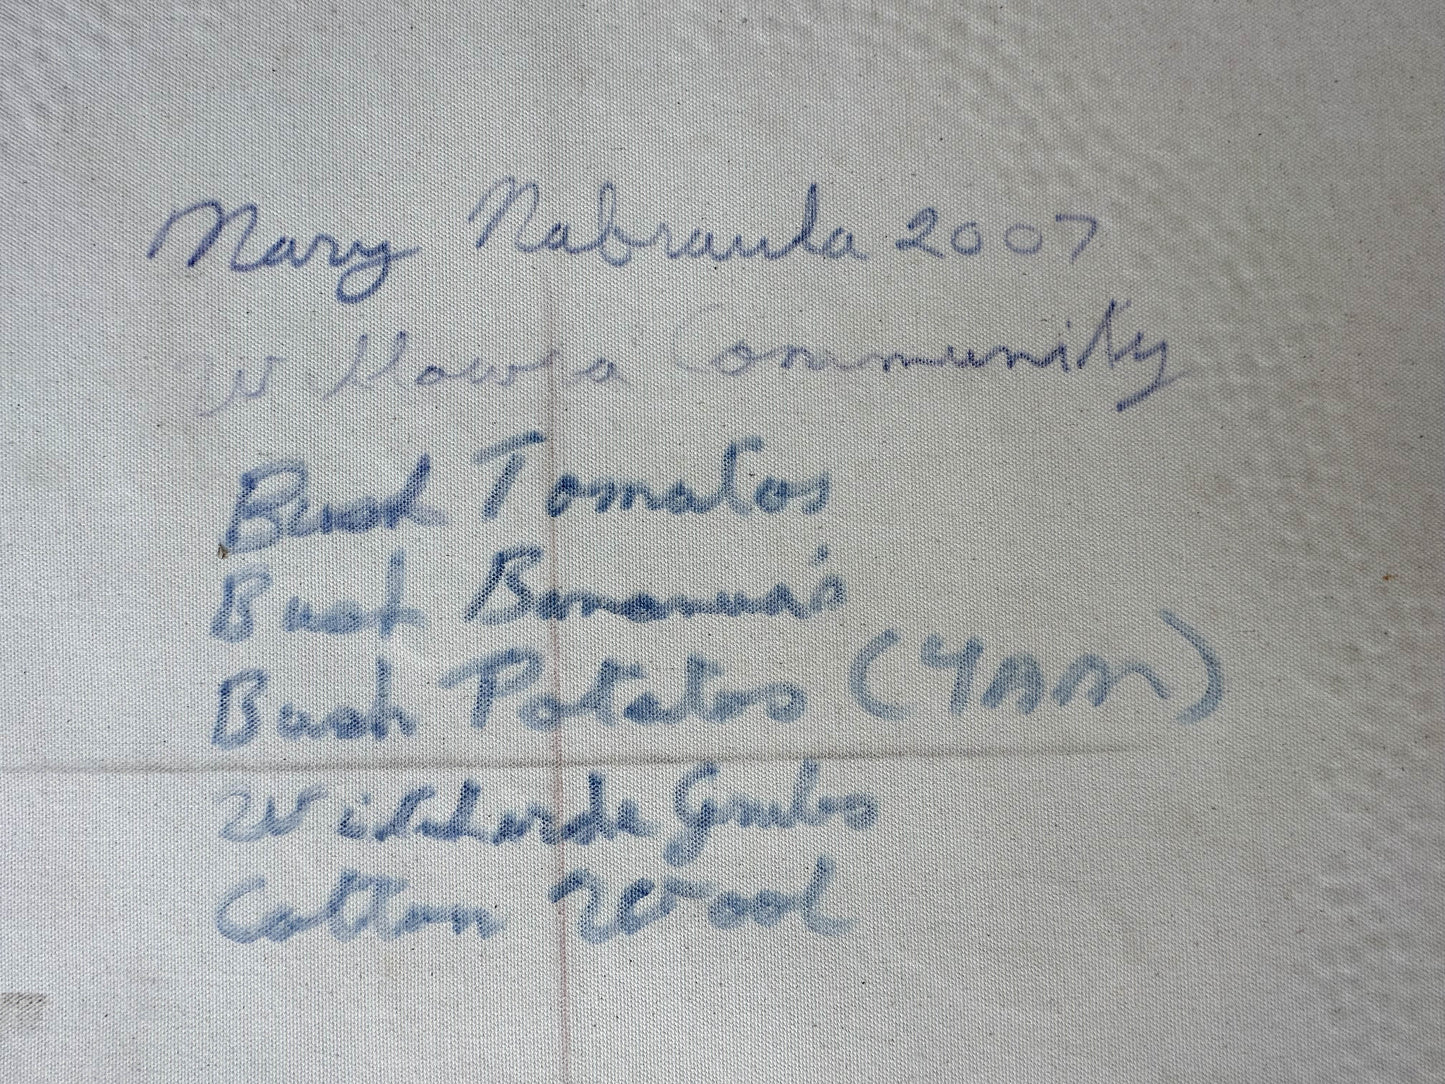 Mary Nabraula 2007
Willowra Community
Bush Tomatos
Bush Bananna's
Bush Potatos (YAM)
Witchorde Grubs
Cotton Wool